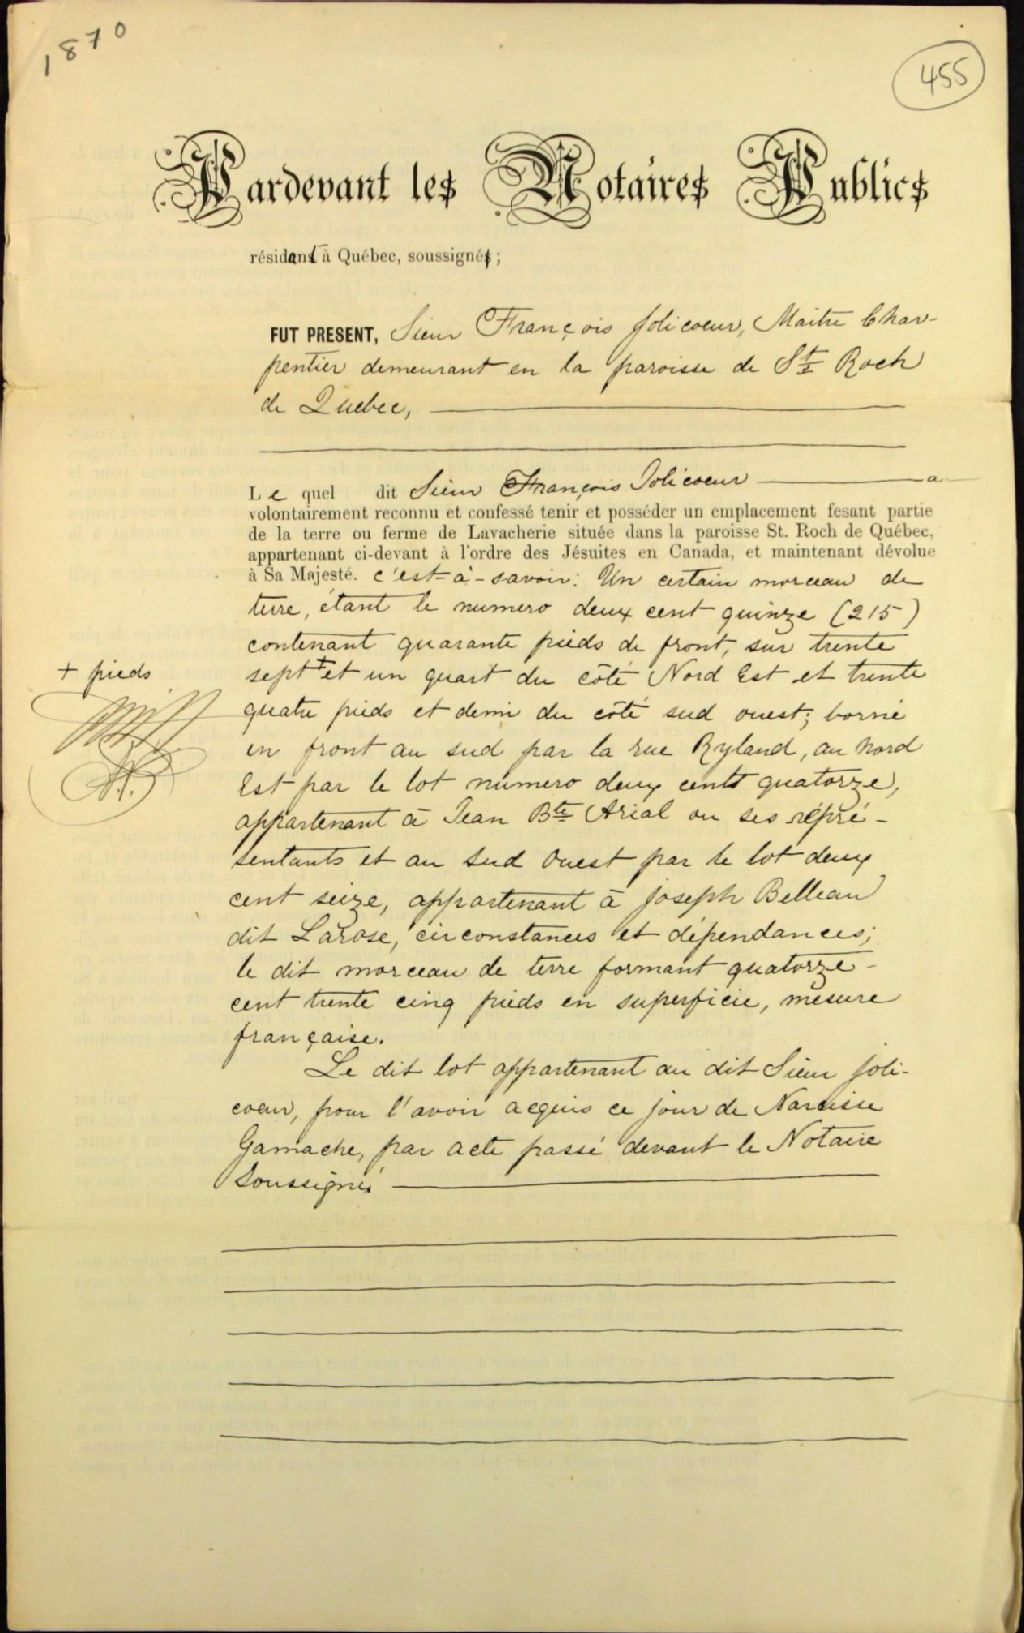 1870
455
Pardevant les Notaires Publics
résidant à Québec, soussignés;
FUT PRESENT, Sieur François Jolicoeur, Maitre Char-
pentier demeurant en la paroisse de St Roch
de Quebec,
Le quel dit Sieur François Jolicoeur a
volontairement reconnu et confessé tenir et posséder un emplacement fesant partie
de la terre ou ferme de Lavacherie située dans la paroisse St. Roch de Québec,
appartenant ci-devant à l'ordre des Jésuites en Canada, et maintenant dévolue
à Sa Majesté. c'est-à-savoir: Un certain morceau de
terre, étant le numero deux cent quinze (215)
contenant quarante pieds de front, sur trente
+ pieds
sept + et un quart du côté Nord Est et trente
quatre pieds et demi du côté sud ouest; borné
en front au sud par la rue Ryland, au Nord
Est par le lot numero deux cent quatorze,
appartenant à Jean Bte Arial ou ses répré-
sentants et au Sud Ouest par le lot deux
cent seize, appartenant à Joseph Belleau
dit Larose, circonstances et dépendances;
le dit morceau de terre formant quatorze-
cent trente cinq pieds en superficie, mesure
française.
Le dit lot appartenant au dit Sieur Joli-
coeur, pour l'avoir acquis ce jour de Narcisse
Gamache, par acte passé devant le Notaire
Soussigné